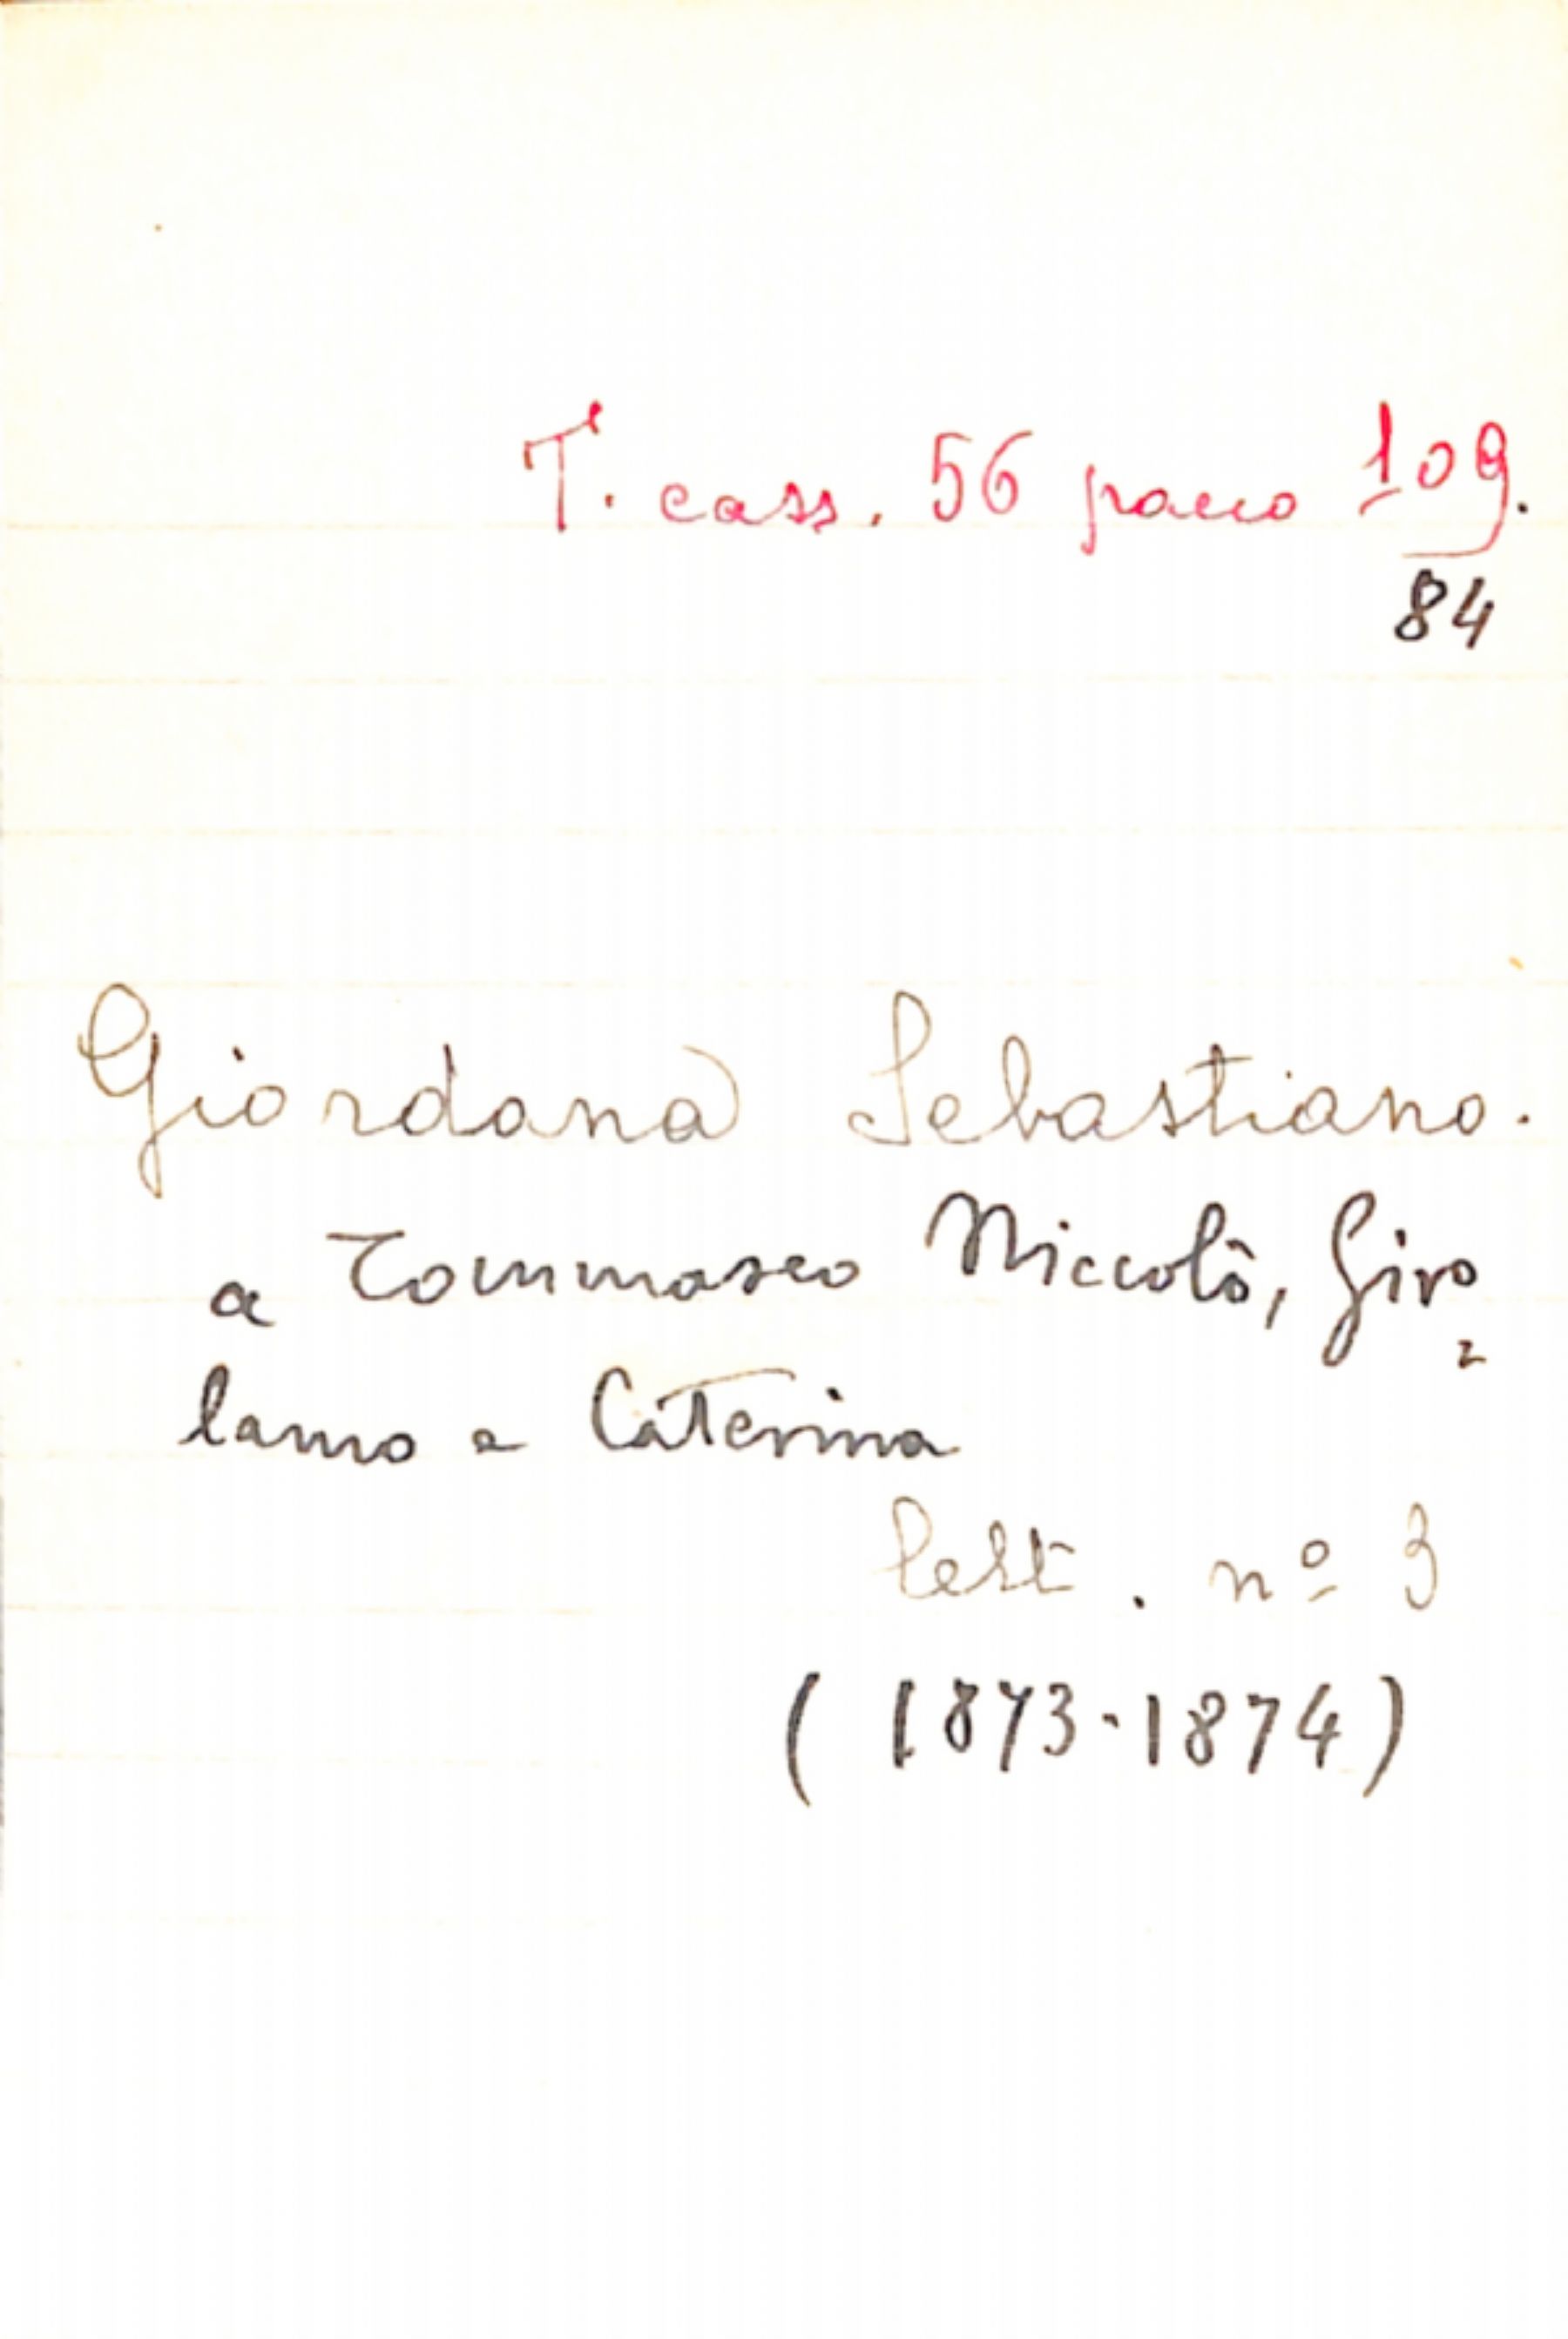 T. cass. 56 pacco 109.
84
Giordana Sebastiano.
a Tommaseo Niccolò, Giro=
lamo e Caterina
lett. nº 3
(1873-1874)